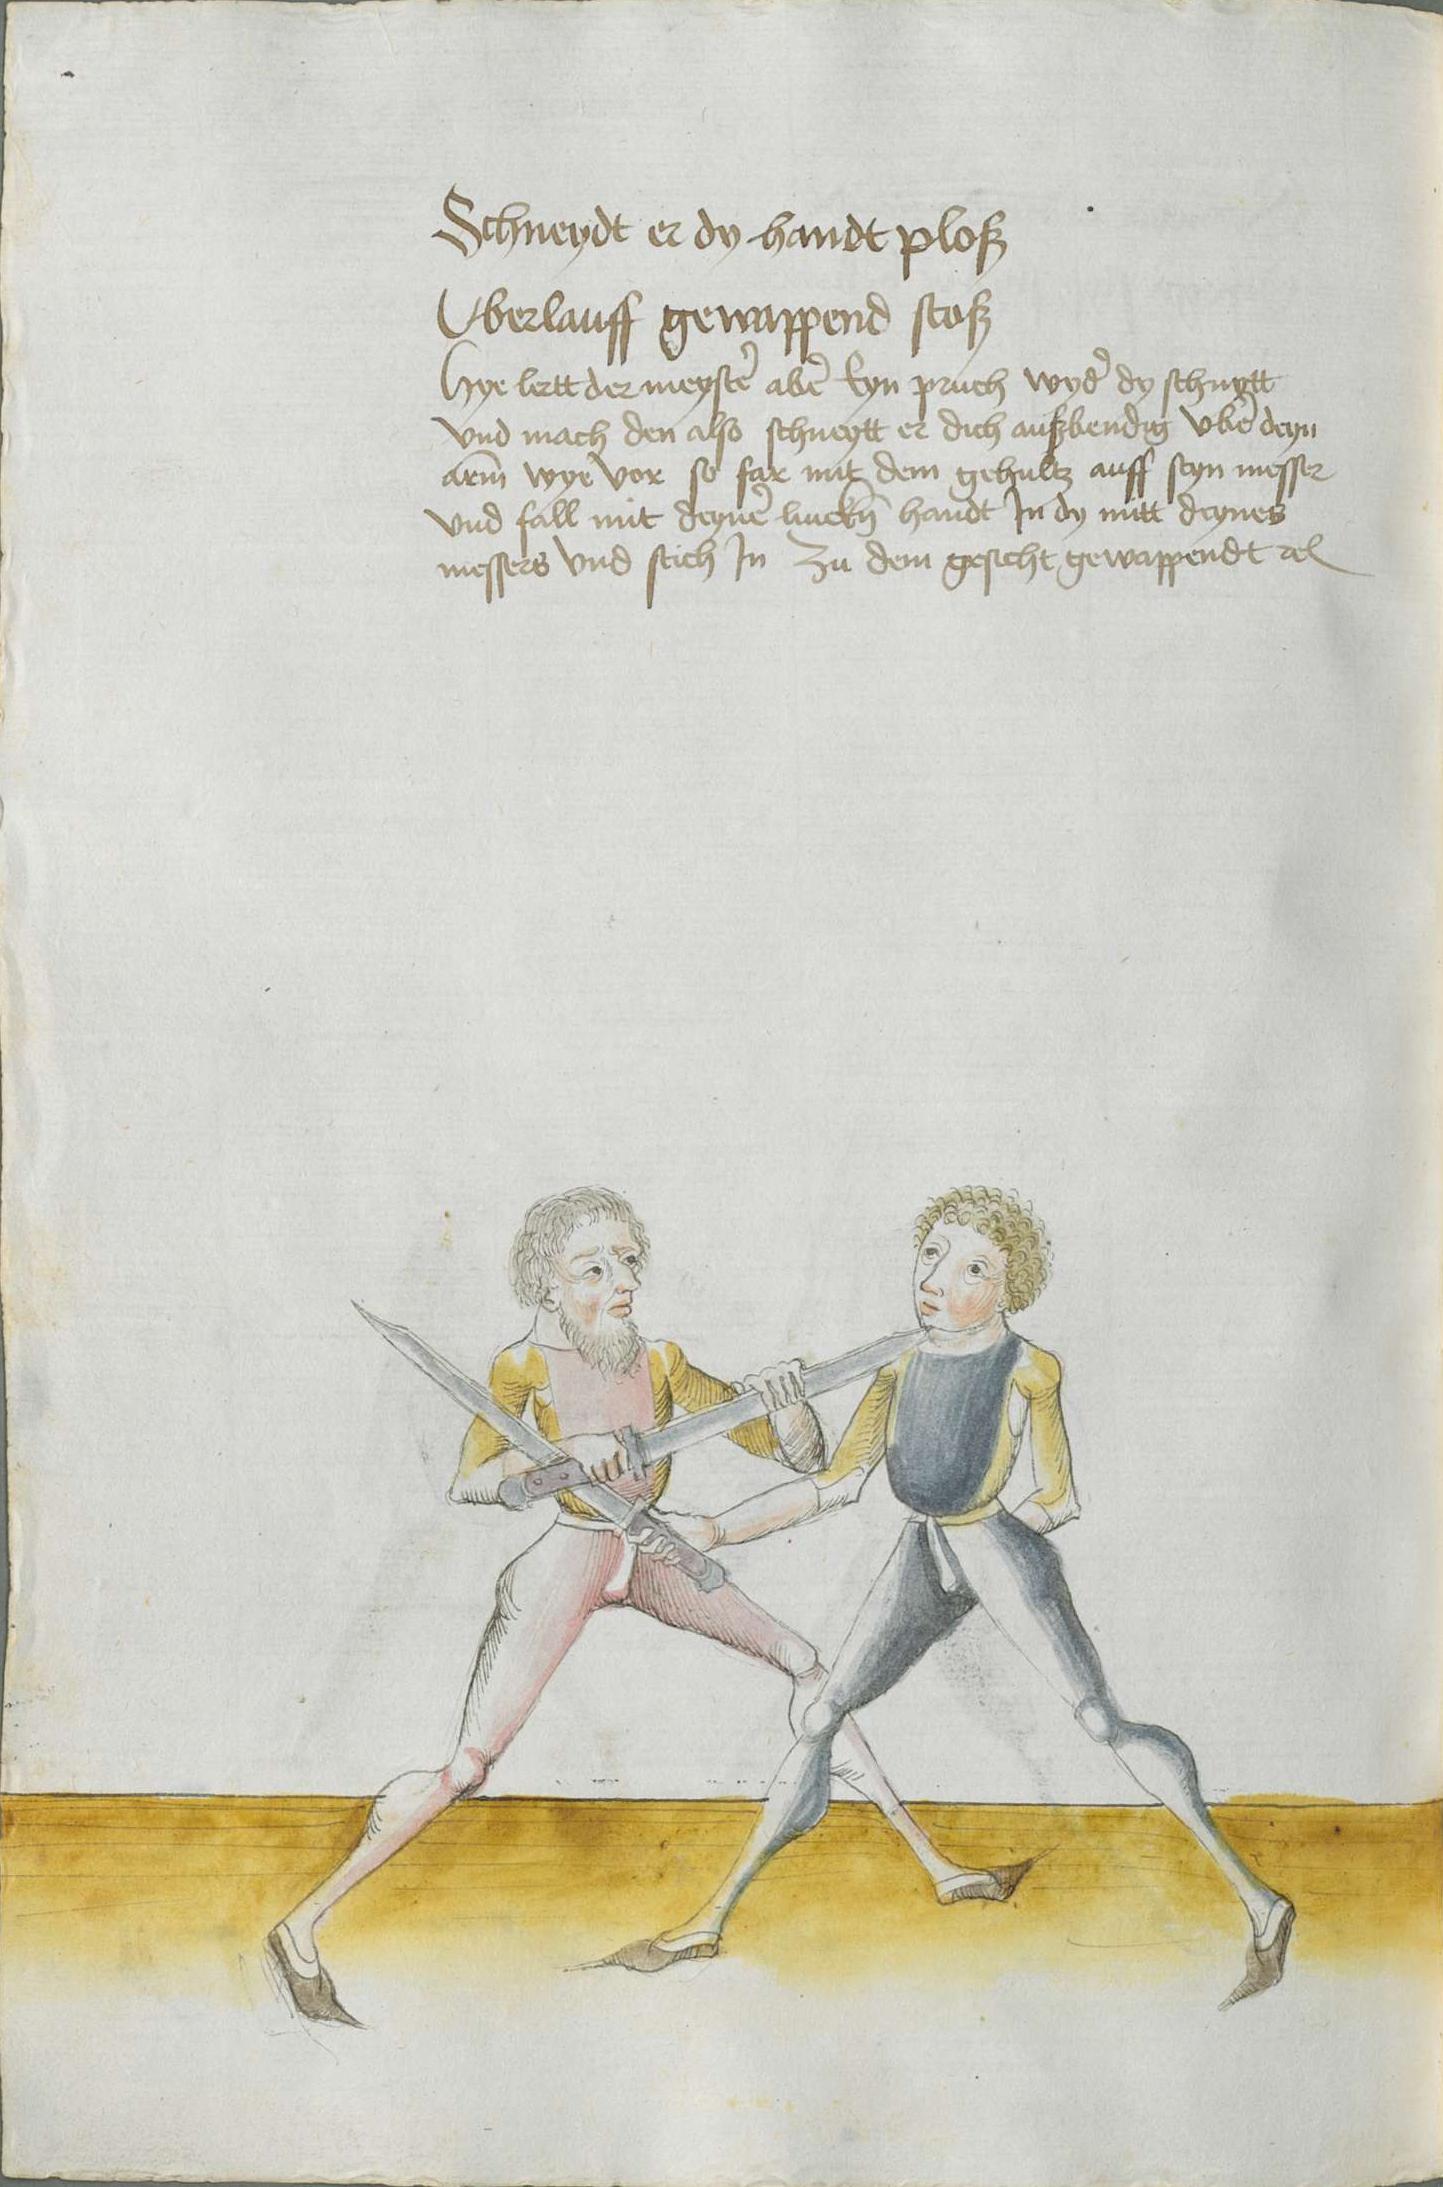 Schneydt er dy handt ploß
Vberlauff gewappend stoß
Hye lertt der meyster̄ aber̄ Eyn pruch wyd̄ dy schnytt
vnd mach den also schneytt er dich außbendig vber̄ deyn
arm̄ wye vor so far mit dem gehultz auff seyn messer
vnd fall mit deyner̄ lincken̄ handt In dy mitt deynes
messers vnd stich In zu dem gesicht gewappendt